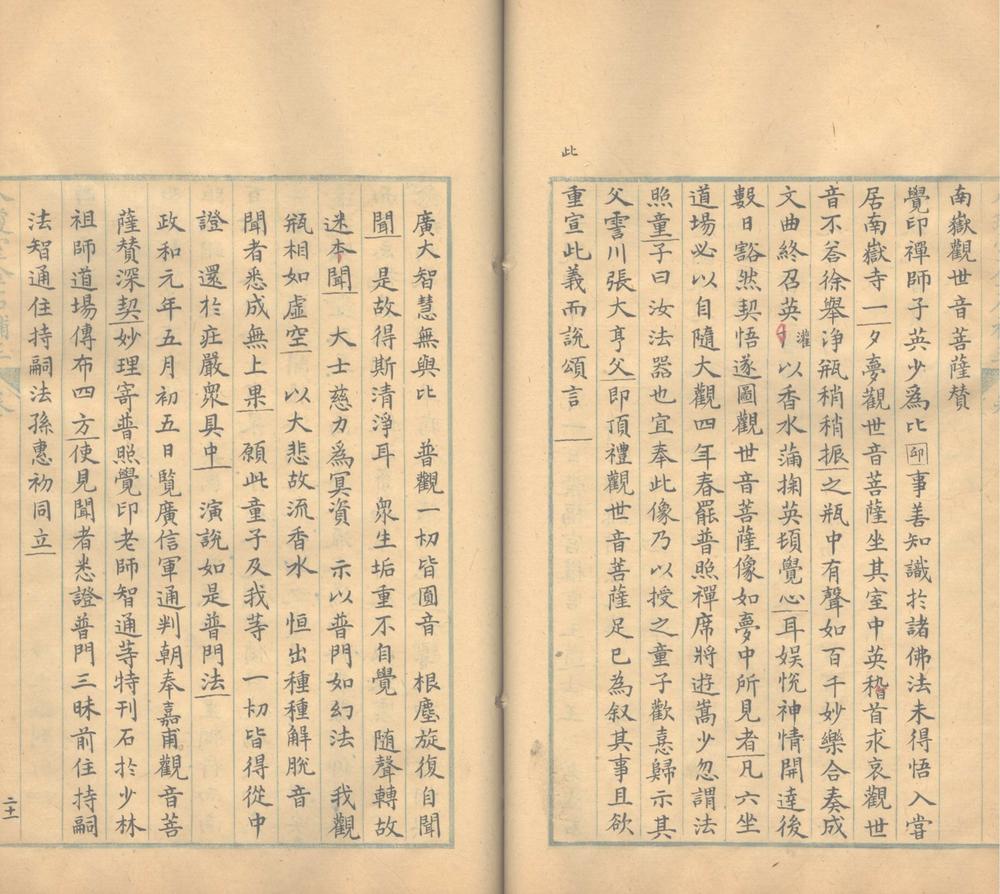 南嶽觀世音菩薩贊
覺印禪師子英少為比卬事善知識於諸佛法未得悟入嘗
居南嶽寺一夕夢觀世音菩薩坐其室中英稽首求哀觀世
音不荅徐舉淨瓶稍稍振之瓶中有聲如百千妙樂合奏成
文曲終召英灌以香水蒲掬英頓覺心耳娛恱神情開逹後
數日豁然契悟遂圖觀世音菩薩像如夢中所見者凡六坐
道場必以自隨大觀四年春罷普照禪席將遊嵩少忽謂法
照童子曰汝法器也宜奉此像乃以授之童子歡憙歸示其
父霅川張大亨父即頂禮觀世音菩薩足已為叙其事且欲
此
重宣此義而說頌言
廣大智慧無與比 普觀一切皆圓音 根塵旋復自聞
聞 是故得斯清淨耳 衆生垢重不自覺 随聲轉故
迷本聞 大士慈力為冥資 示以普門如幻法 我觀
瓶相如虛空 以大悲故流香水 恒出種種解脫音
聞者悉成無上果 願此童子及我等 一切皆得從中
證 還於莊嚴衆具中 演說如是普門法
政和元年五月初五日覽廣信軍通判朝奉嘉甫觀音菩
薩贊深契妙理寄普照覺印老師智通等特刊石於少林
祖師道場傳布四方使見聞者悉證普門三昧前住持嗣
法智通住持嗣法孫惠初同立
二十一